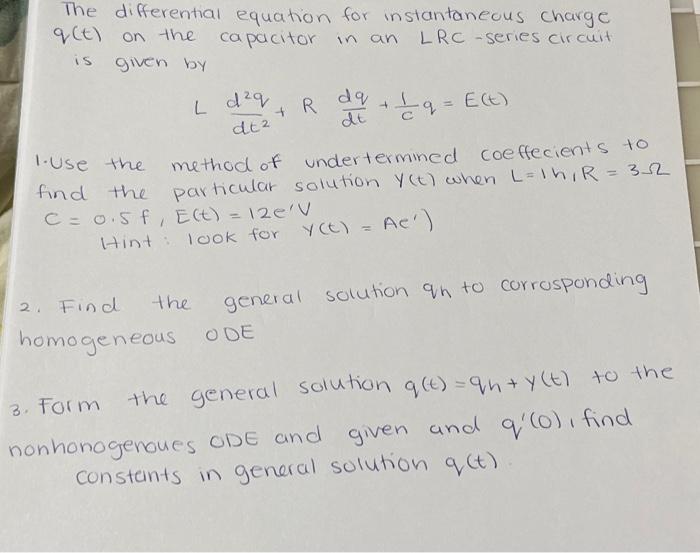 The differential equation for instantaneous charge
q(t) on the capacitor in an LRC-series circuit
is given by
L d²q/dt² + R dq/dt + 1/c q = E(t)
1. Use the method of undertermined coeffecients to
find the particular solution Y(t) when L=1h, R = 3Ω
C = 0.5f, E(t) = 12e'V
Hint: look for Y(t) = Ae')
2. Find the general solution qh to corrosponding
homogeneous ODE
3. Form the general solution q(t) = qh + y(t) to the
nonhonogenoues ODE and given and q'(0), find
constants in general solution q(t).